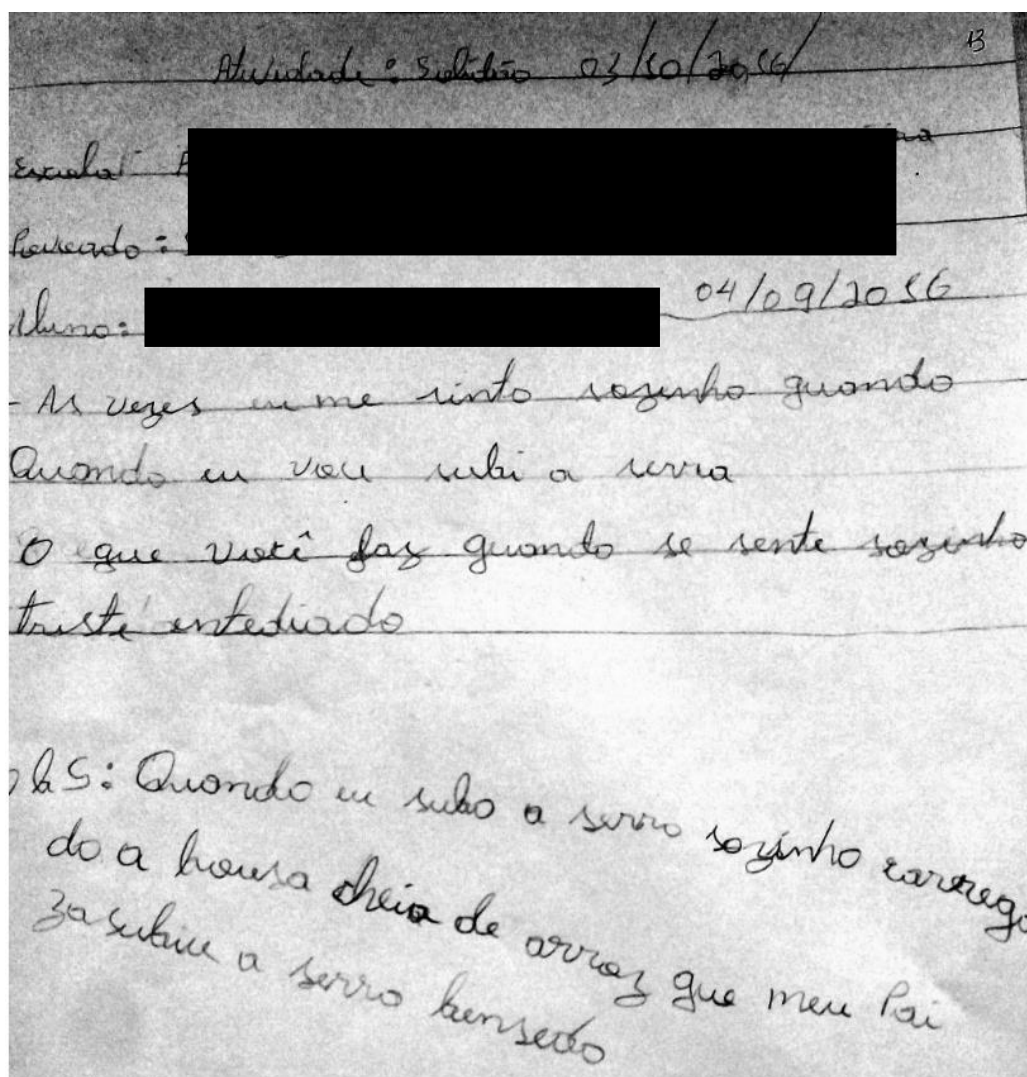 13
Atividade: Solidão 03/10/2016
Escola
Povoado:
Aluno: 04/09/2016
- As vezes eu me sinto sozinho quando
Quando eu vou subi a serra
O que você faz quando se sente sozinho
triste entediado
obS: Quando eu subo a serra sozinho carrega
do a housa cheia de arroz que meu Pai
za subiu a serra bensedo